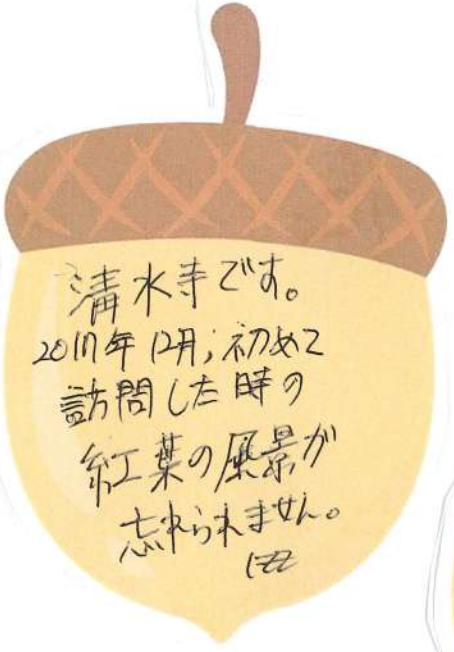 清水寺です。
2017年12月、初めて
訪問した時の
紅葉の風景が
忘れられません。